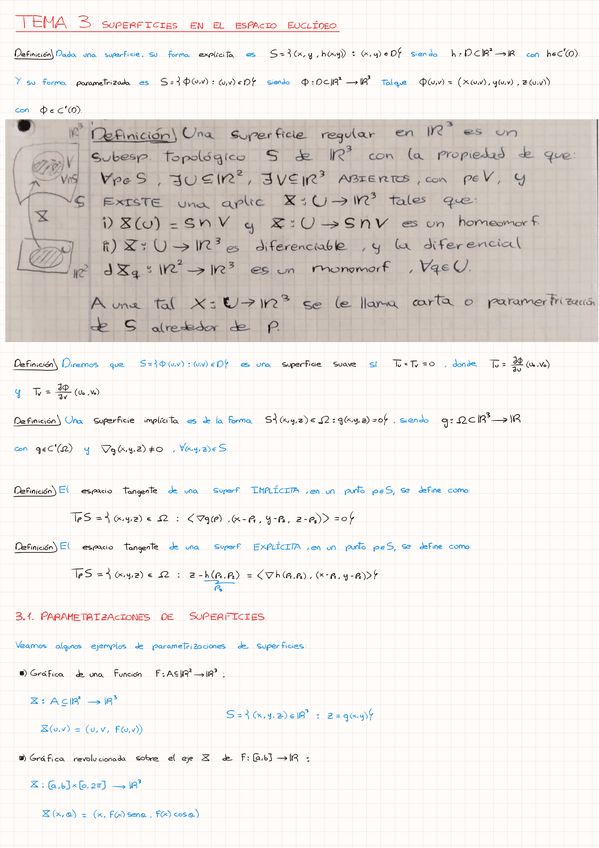 TEMA 3: SUPERFICIES EN EL ESPACIO EUCLÍDEO
Definición) Dada una superficie, su forma explícita es S={(x,y,h(x,y)) : (x,y)∈D} siendo h:D⊂ℝ²→ℝ con h∈C¹(D).
Y su forma parametrizada es S={Φ(u,v) : (u,v)∈D} siendo Φ:D⊂ℝ²→ℝ³ tal que Φ(u,v) = (x(u,v), y(u,v), z(u,v))
con Φ∈C¹(D).
ℝ³
V
V∩S
S
X
ℝ²
Definición) Una superficie regular en ℝ³ es un
subesp. topológico S de ℝ³ con la propiedad de que:
∀p∈S, ∃U⊆ℝ², ∃V⊆ℝ³ ABIERTOS, con p∈V, y
EXISTE una aplic X:U→ℝ³ tales que:
i) X(U) = S∩V y X:U→S∩V es un homeomorf.
ii) X:U→ℝ³ es diferenciable, y la diferencial
dXq : ℝ²→ℝ³ es un monomorf, ∀q∈U.
A una tal X:U→ℝ³ se le llama carta o parametrización
de S alrededor de p.
Definición) Diremos que S={Φ(u,v) : (u,v)∈D} es una superficie suave si Tu×Tv=0, donde Tu = ∂Φ/∂u (u₀,v₀)
y Tv = ∂Φ/∂v (u₀,v₀)
Definición) Una superficie implícita es de la forma S{(x,y,z)∈Ω : g(x,y,z)=0}, siendo g:Ω⊂ℝ³→ℝ
con g∈C¹(Ω) y ∇g(x,y,z)≠0, ∀(x,y,z)∈S.
Definición) El espacio tangente de una superf IMPLÍCITA, en un punto p∈S, se define como:
TpS={(x,y,z)∈Ω : <∇g(p),(x-p₁, y-p₂, z-p₃)>=0}
Definición) El espacio tangente de una superf EXPLÍCITA, en un punto p∈S, se define como:
TpS={(x,y,z)∈Ω : z-h(p₁,p₂) = <∇h(p₁,p₂),(x-p₁, y-p₂)>}
p₃
3.1. PARAMETRIZACIONES DE SUPERFICIES
Veamos algunos ejemplos de parametrizaciones de superficies
Gráfica de una función F:A⊆ℝ²→ℝ³.
X: A⊆ℝ² → ℝ³
S={(x,y,z)∈ℝ³ : z=g(x,y)}
X(u,v) = (u,v, F(u,v))
Gráfica revolucionada sobre el eje X de F:[a,b]→ℝ:
X: [a,b]×[0,2π] → ℝ³
X(x,θ) = (x, F(x)senθ, F(x)cosθ)